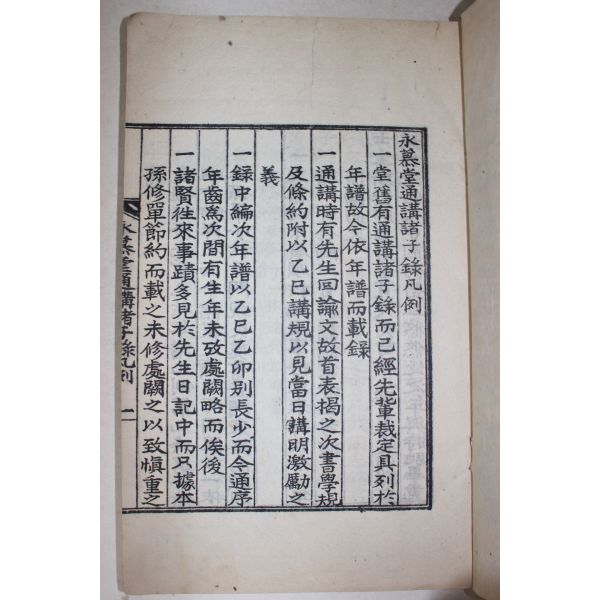 永慕堂通講諸子錄凡例
一堂舊有通講諸子錄而已經先輩裁定具列於
年譜故今依年譜而載錄
一通講時有先生回諭文故首表揭之次書學規
及條約附以乙巳講規以見當日講明激勵之
義
一錄中編次年譜以乙巳乙卯別長少而今通序
年齒為次間有生年未攷處闕略而俟後
一諸賢往來事蹟多見於先生日記中而只據本
孫修單節約而載之未修處闕之以致愼重之
永慕堂通講諸子錄凡例 一